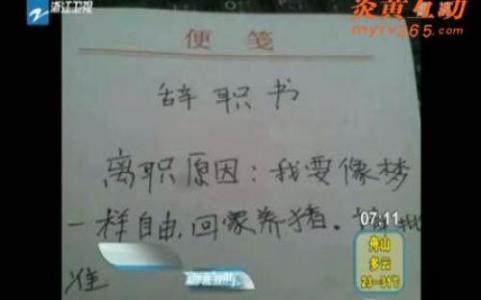 浙江卫视
炎黄互动
mytv365.com
便笺
辞职书
离职原因：我要像梦
一样自由，回家养猪。请批
准
07:11
舟山
多云
23-31℃